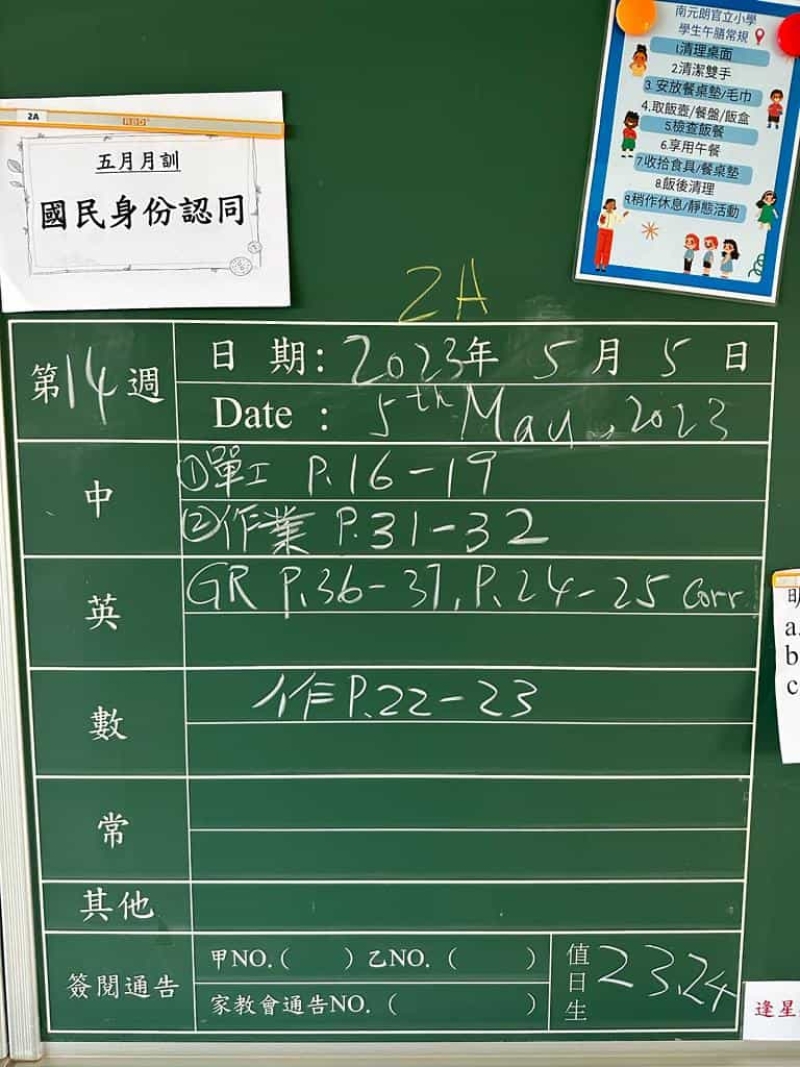 2A
五月月訓
國民身份認同
南元朗官立小學
學生午膳常規
1.清理桌面
2.清潔雙手
3.安放餐桌墊/毛巾
4.取飯壺/餐盤/飯盒
5.檢查飯餐
6.享用午餐
7.收拾食具/餐桌墊
8.飯後清理
9.稍作休息/靜態活動
2A
第14週
日 期: 2023年 5月 5日
Date : 5th May, 2023
中
①單工 P.16-19
②作業 P.31-32
英
GR P.36-37, P.24-25 corr.
數
作P.22-23
常
其他
簽閱通告
甲NO.( ) 乙NO.( )
家教會通告NO.( )
值日生 23,24
a.
b
c
逢星